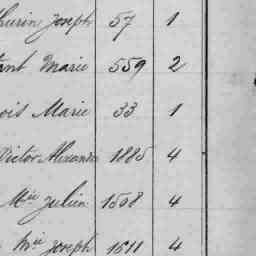 thurin Joseph 57 1
ant Marie 559 2
ois Marie 33 1
Victor Alexandre 1885 4
Mie Julien 1508 4
Mie Joseph 1611 4